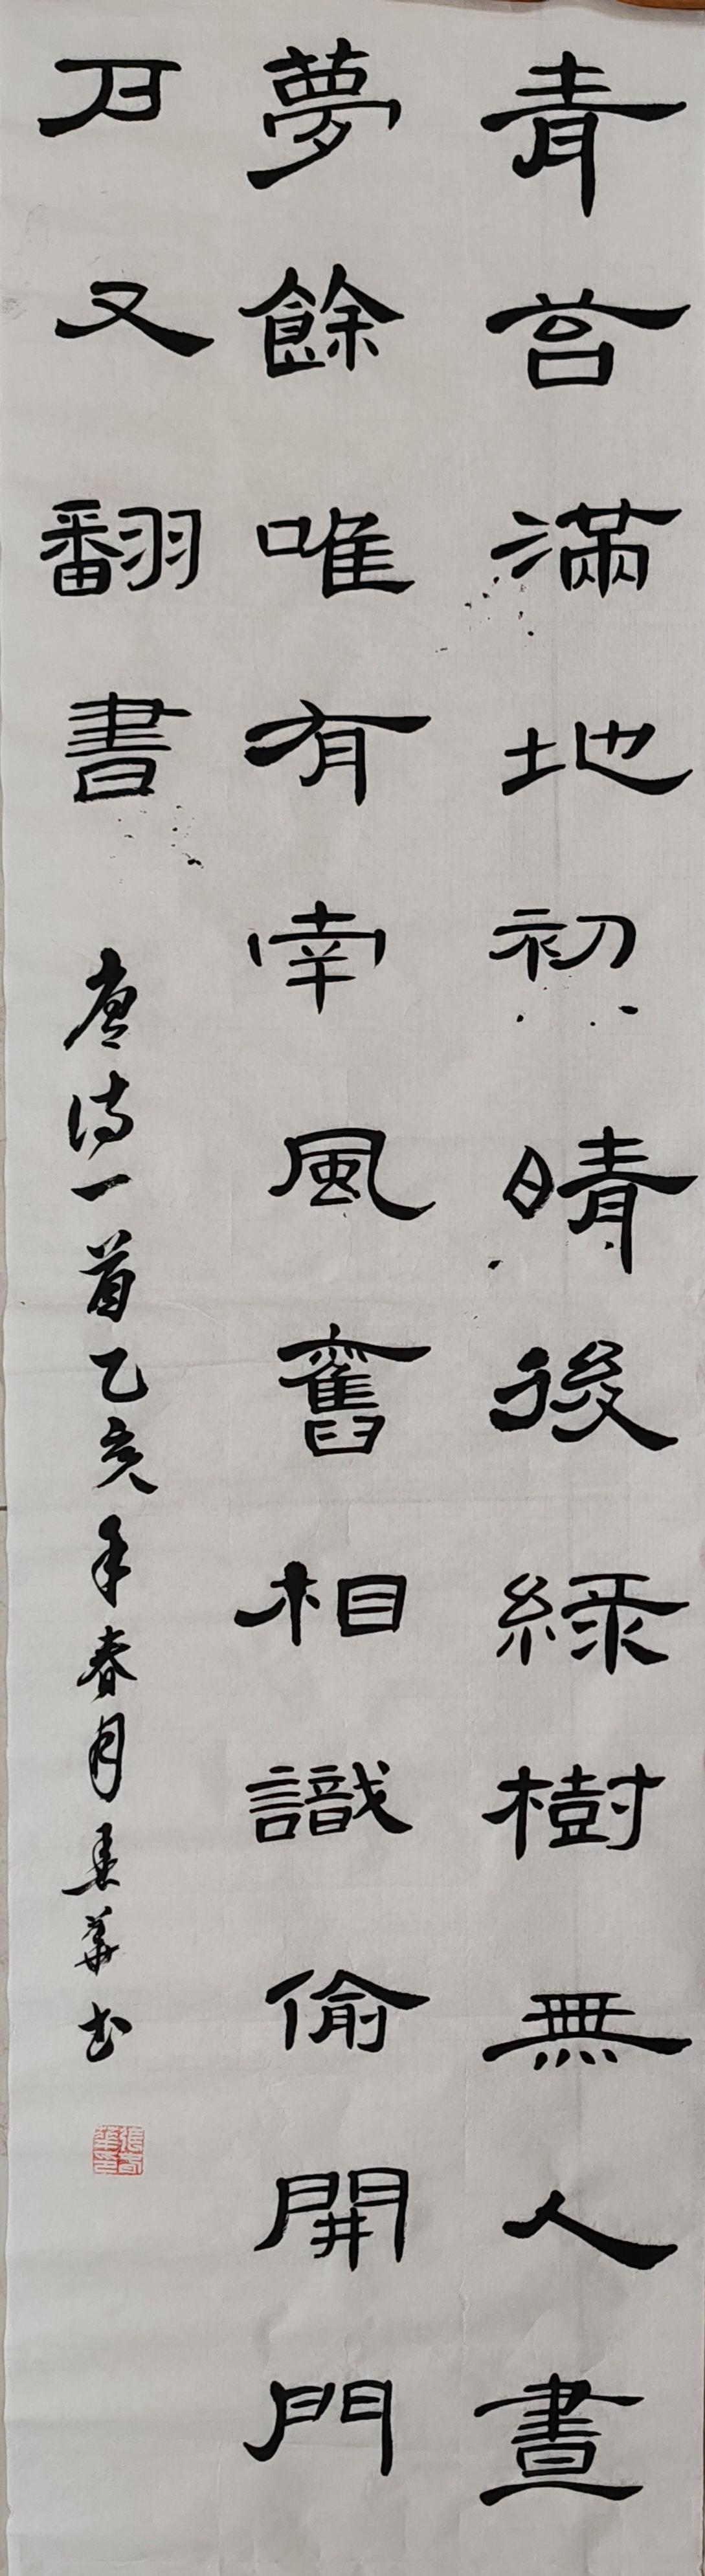 青苔滿地初晴後綠樹無人晝
夢餘唯有南風舊相識偷開門
戶又翻書
唐诗一首乙亥年春月華书